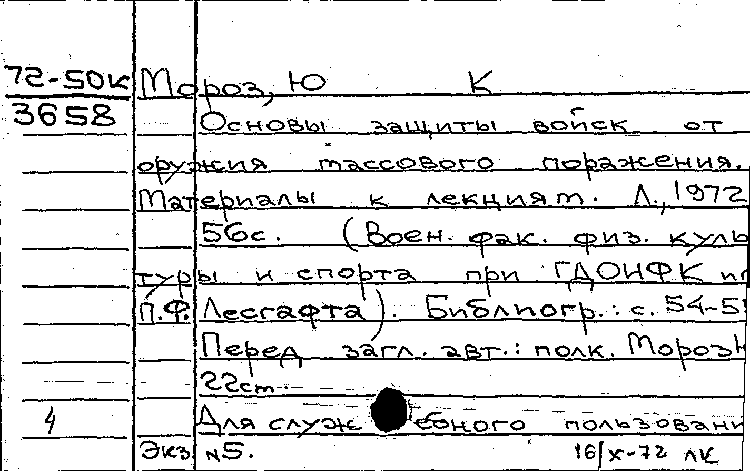 72-50к Мороз, Ю К
3658 Основы защиты войск от
оружия массового поражения.
Материалы к лекциям. Л., 1972
56с. (Воен. фак. физ. куль
туры и спорта при ГДОИФК им
П.Ф. Лесгафта). Библиогр.: с. 54-5
Перед загл. авт.: полк. Мороз Ю
22см
4 Для служебного пользовани
Экз. №5. 16/X-72 ЛК